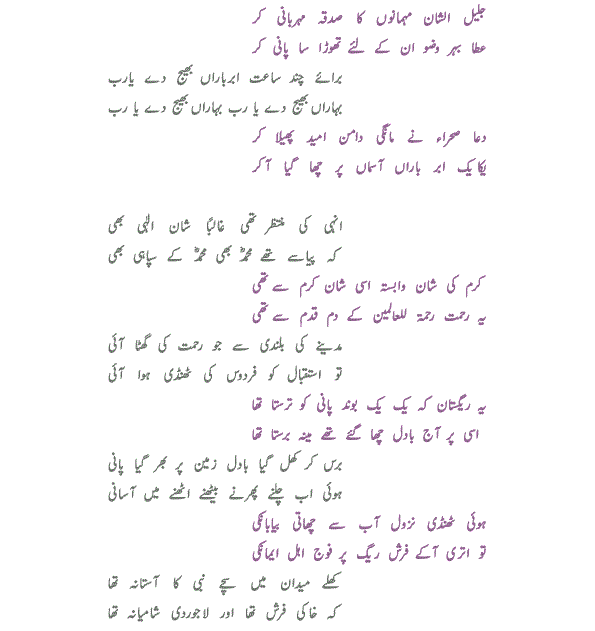 جلیل الشان مہمانوں کا صدقہ مہربانی کر
عطا بہر وضو ان کے لئے تھوڑا سا پانی کر
برائے چند ساعت ابرباراں بھیج دے یارب
بہاراں بھیج دے یا رب بہاراں بھیج دے یا رب
دعا صحراء نے مانگی دامن امید پھیلا کر
یکایک ابر باراں آسماں پر چھا گیا آکر
انہی کی منتظر تھی غالباً شان الٰہی بھی
کہ پیاسے تھے محمدؐ بھی محمدؐ کے سپاہی بھی
کرم کی شان وابستہ اسی شان کرم سے تھی
یہ رحمت رحمۃ للعالمین کے دم قدم سے تھی
مدینے کی بلندی سے جو رحمت کی گھٹا آئی
تو استقبال کو فردوس کی ٹھنڈی ہوا آئی
یہ ریگستان کہ یک یک بوند پانی کو ترستا تھا
اسی پر آج بادل چھا گئے تھے مینہ برستا تھا
برس کر کھل گیا بادل زمین پر بھر گیا پانی
ہوئی اب چلنے پھرنے بیٹھنے اٹھنے میں آسانی
ہوئی ٹھنڈی نزول آب سے چھاتی بیابانکی
تو اتری آکے فرش ریگ پر فوج اہل ایمانکی
کھلے میدان میں سچے نبی کا آستانہ تھا
کہ خاکی فرش تھا اور لاجوردی شامیانہ تھا